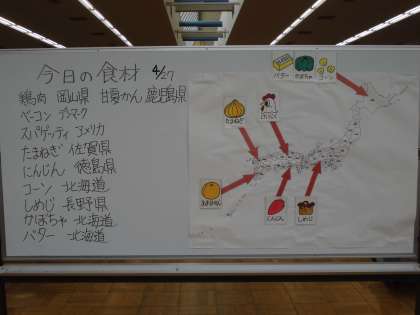 今日の食材 4/27
鶏肉 岡山県 甘夏かん 鹿児島県
ベーコン デンマーク
スパゲッティ アメリカ
たまねぎ 佐賀県
にんじん 徳島県
コーン 北海道
しめじ 長野県
かぼちゃ 北海道
バター 北海道
バター かぼちゃ コーン
たまねぎ
とりにく
にんじん
しめじ